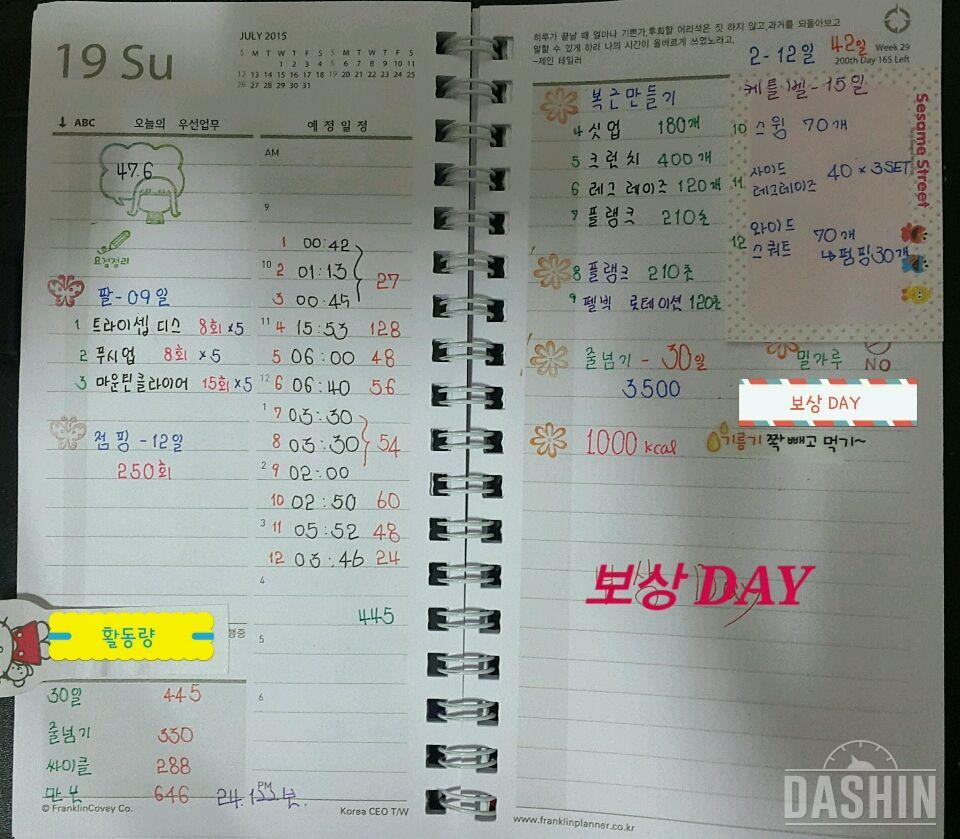 19 Su
JULY 2015
S M T W T F S S M T W T F S
1 2 3 4 5 6 7 8 9 10 11
12 13 14 15 16 17 18 19 20 21 22 23 24 25
26 27 28 29 30 31
↓ ABC 오늘의 우선업무
47.6
요점정리
팔-09일
1 트라이셉 디스 8회 ×5
2 푸시업 8회 ×5
3 마운틴클라이머 15회 ×5
점핑 - 12일
250회
활동량
행중
30일 445
줄넘기 330
싸이클 288
만보 646
© FranklinCovey Co.
예정일정
AM
9
1 00:42
10 2 01:13 27
3 00:45
11 4 15:53 128
5 06:00 48
12 6 06:40 56
1 7 03:30
8 03:30 54
2 9 02:00
10 02:50 60
3 11 05:52 48
12 03:46 24
4
445
5
6
PM
Korea CEO T/W
하루가 끝날 때 얼마나 기쁜가, 후회할 어리석은 짓 하지 않고, 과거를 되돌아보고
말할 수 있게 하라 나의 시간이 올바르게 쓰였노라고,
-제인 테일러
2-12일 42일
Week 29
200th Day 165 Left
복근만들기
4 싯업 180개
5 크런치 400개
6 레그레이즈 120개
7 플랭크 210초
8 플랭크 210초
9 펠빅 로테이션 120초
케틀벨-15일
10 스윙 70개
11 사이드
레그레이즈 40 × 3SET
12 와이드
스쿼트 70개
↳펌핑30개
Sesame Street
줄넘기 - 30일
3500
밀가루
NO
보상 DAY
1000 kcal
기름기 쫙 빼고 먹기~
보상 DAY
www.franklinplanner.co.kr
DASHIN